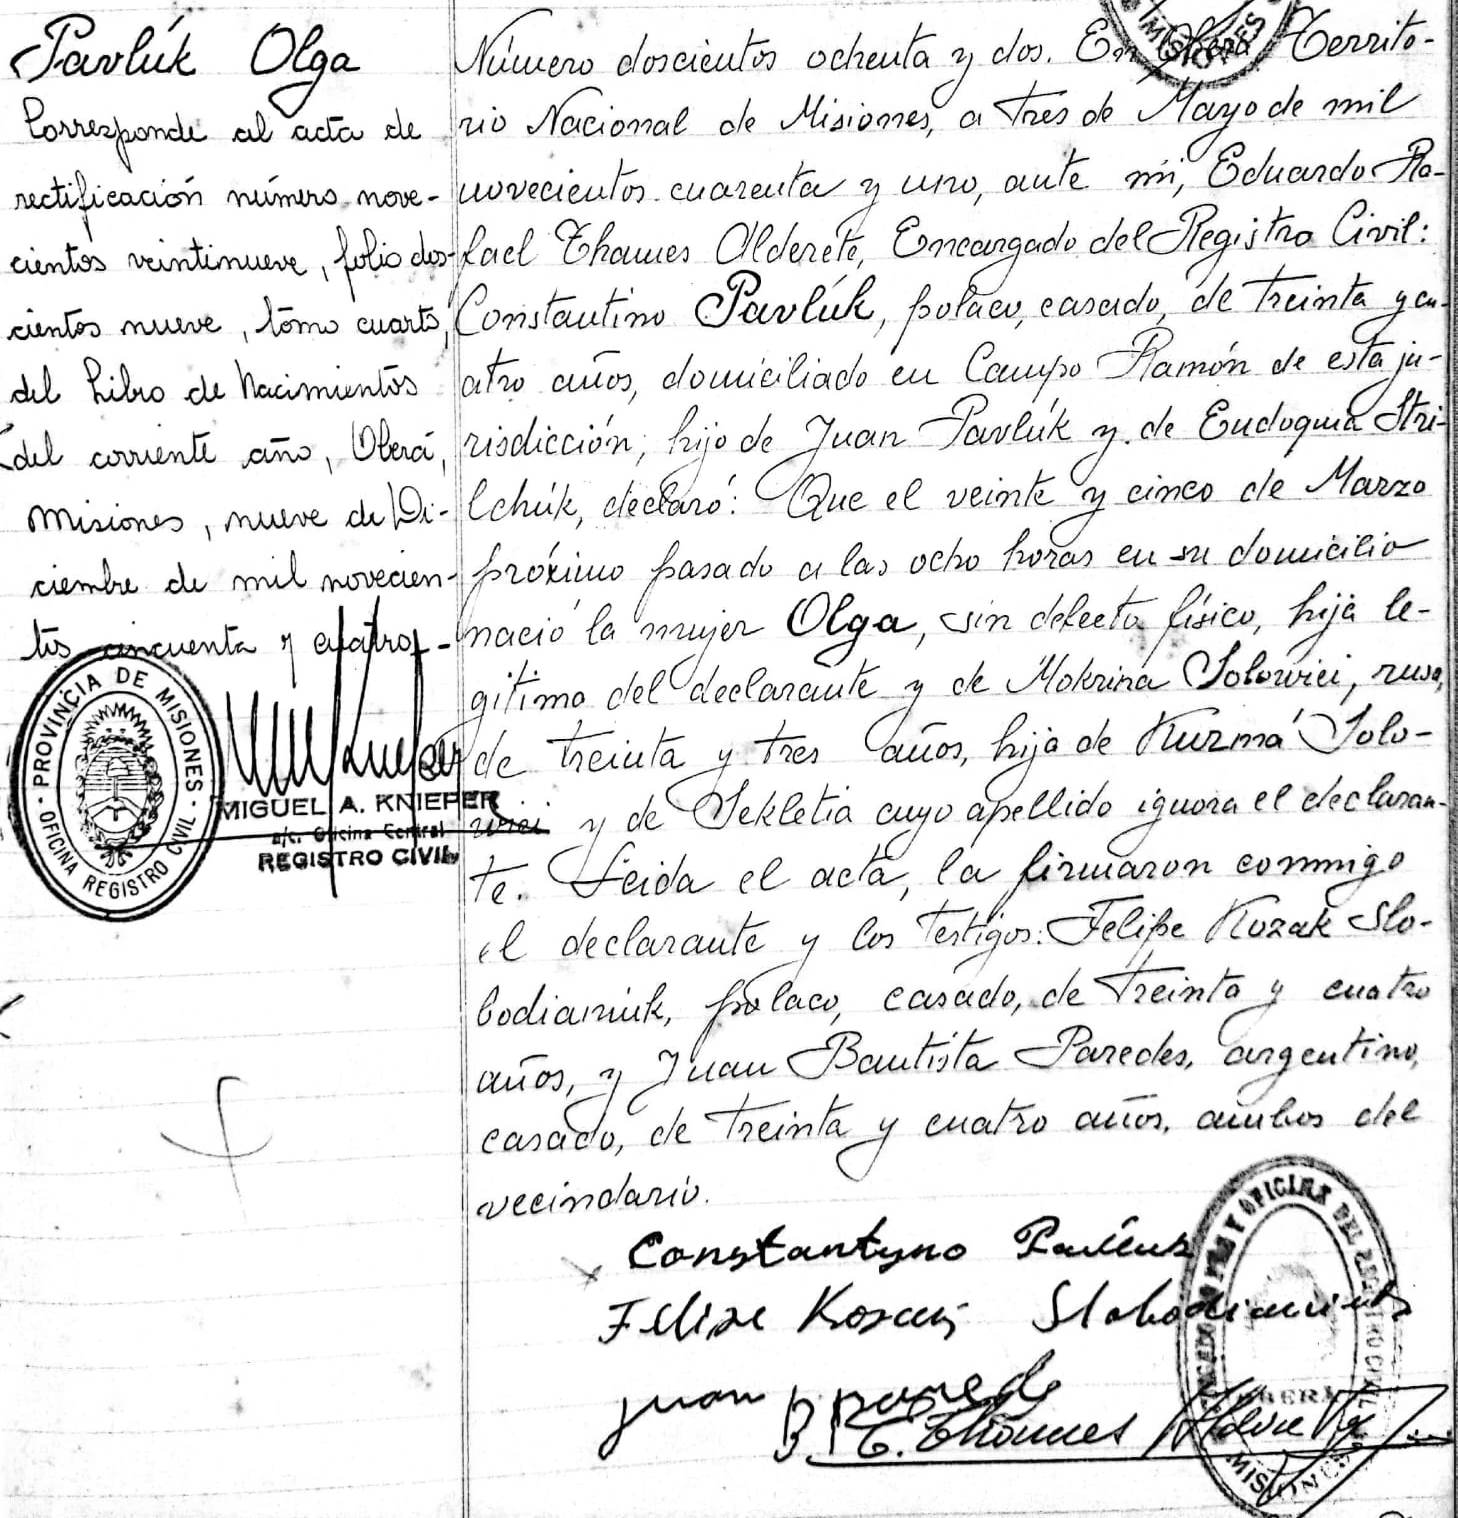 Pavlúk Olga
Corresponde al acta de
rectificación número nove-
cientos veintinueve, folio dos-
cientos nueve, tomo cuarto,
del Libro de Nacimientos
del corriente año, Oberá,
Misiones, nueve de Di-
ciembre de mil novecien-
tos cincuenta y cuatro.-
PROVINCIA DE MISIONES
OFICINA REGISTRO CIVIL
MIGUEL A. KNIEPER
a/c. Oficina Central
REGISTRO CIVIL
MISIONES
Número doscientos ochenta y dos. En Oberá Territo-
rio Nacional de Misiones, a tres de Mayo de mil
novecientos cuarenta y uno, ante mí, Eduardo Ra-
fael Thames Alderete, Encargado del Registro Civil:
Constantino Pavlúk, polaco, casado, de treinta y cu-
atro años, domiciliado en Campo Ramón de esta ju-
risdicción, hijo de Juan Pavlúk y de Eudoquia Stri-
lchúk, declaró: Que el veinte y cinco de Marzo
próximo pasado a las ocho horas en su domicilio
nació la mujer Olga, sin defecto físico, hija le-
gitima del declarante y de Mokrina Solowiei, rusa,
de treinta y tres años, hija de Kuzmá Solo-
wiei y de Sekletia cuyo apellido ignora el declaran-
te. Leida el acta, la firmaron conmigo
el declarante y los testigos: Felipe Kozak Slo-
bodianiuk, polaco, casado, de treinta y cuatro
años, y Juan Bautista Paredes, argentino,
casado, de treinta y cuatro años, ambos del
vecindario.
Constantyno Pavluk
Felipe Kosak Slobodianiuk
Juan B Paredes
E. R. Thames Alderete
OFICINA DEL REGISTRO CIVIL
OBERA
MISIONES